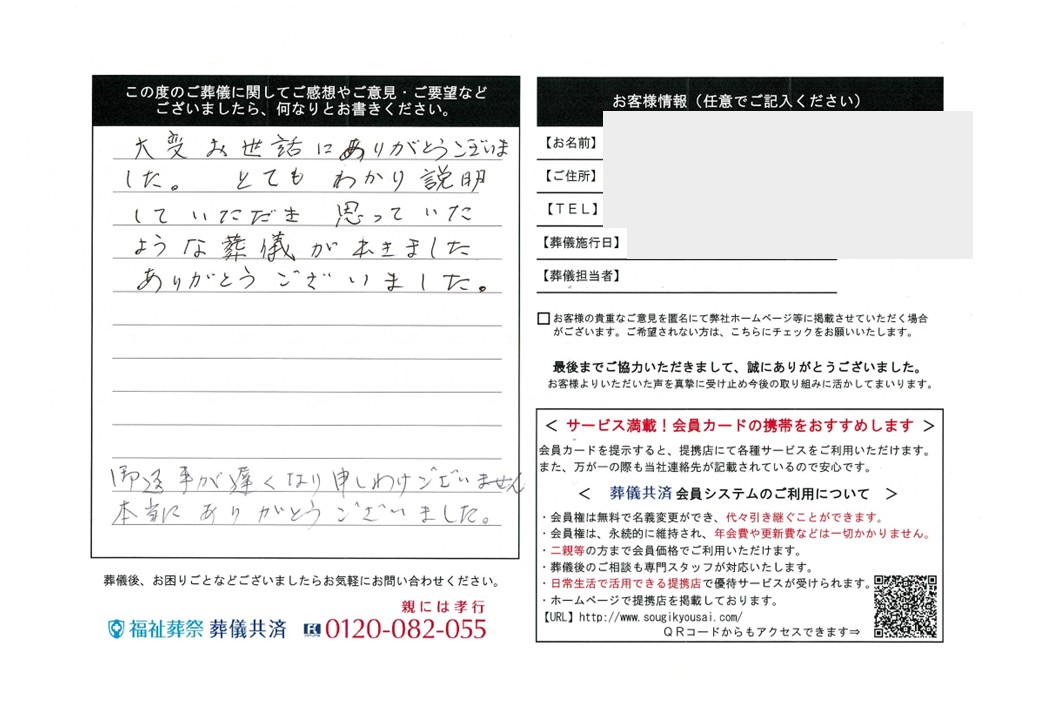 この度のご葬儀に関してご感想やご意見・ご要望など
ございましたら、何なりとお書きください。
大変お世話にありがとうございま
した。 とても わかり説明
していただき 思っていた
ような葬儀が 出きました
ありがとうございました。
御返事が遅くなり申しわけございません
本当に ありがとうございました。
葬儀後、お困りごとなどございましたらお気軽にお問い合わせください。
親には孝行
福祉葬祭 葬儀共済 0120-082-055
お客様情報（任意でご記入ください）
【お名前】
【ご住所】
【TEL】
【葬儀施行日】
【葬儀担当者】
□お客様の貴重なご意見を匿名にて弊社ホームページ等に掲載させていただく場合
がございます。ご希望されない方は、こちらにチェックをお願いいたします。
最後までご協力いただきまして、誠にありがとうございました。
お客様よりいただいた声を真摯に受け止め今後の取り組みに活かしてまいります。
＜ サービス満載！会員カードの携帯をおすすめします ＞
会員カードを提示すると、提携店にて各種サービスをご利用いただけます。
また、万が一の際も当社連絡先が記載されているので安心です。
＜ 葬儀共済 会員システムのご利用について ＞
・会員権は無料で名義変更ができ、代々引き継ぐことができます。
・会員権は、永続的に維持され、年会費や更新費などは一切かかりません。
・二親等の方まで会員価格でご利用いただけます。
・葬儀後のご相談も専門スタッフが対応いたします。
・日常生活で活用できる提携店で優待サービスが受けられます。
・ホームページで提携店を掲載しております。
【URL】http://www.sougikyousai.com/
QRコードからもアクセスできます⇒